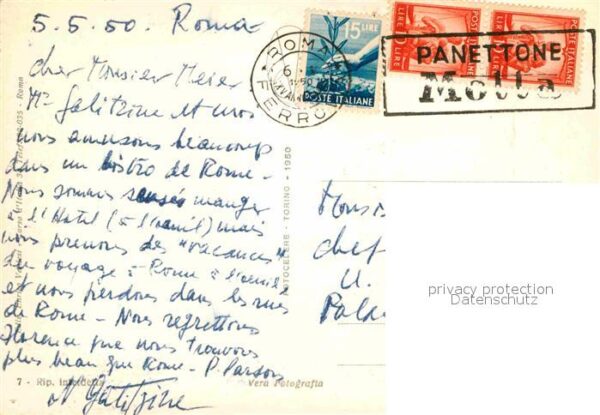 5.5.50. Roma
cher Monsieur Meier
Mme Galitzine et moi
nous amusons beaucoup
dans un bistro de Rome -
Nous sommes sensés manger
à l'Hotel (à l'oeuil) mais
nous prenons des "vacances"
du voyage à Rome à l'oeuil
et nous perdons dans les rues
de Rome - Nous regrettons
Florence que nous trouvons
plus beau que Rome - P. Parsons
N Galitzine
7 - Rip. interdetta
Vera Fotografia
FOTOCELERE - TORINO - 1950
- Roma
ROMA
FERROVIA
15 LIRE
POSTE ITALIANE
LIRE 10 LIRE
POSTE ITALIANE
PANETTONE
Motta
Monsi
chef
U.
Pala
privacy protection
Datenschutz